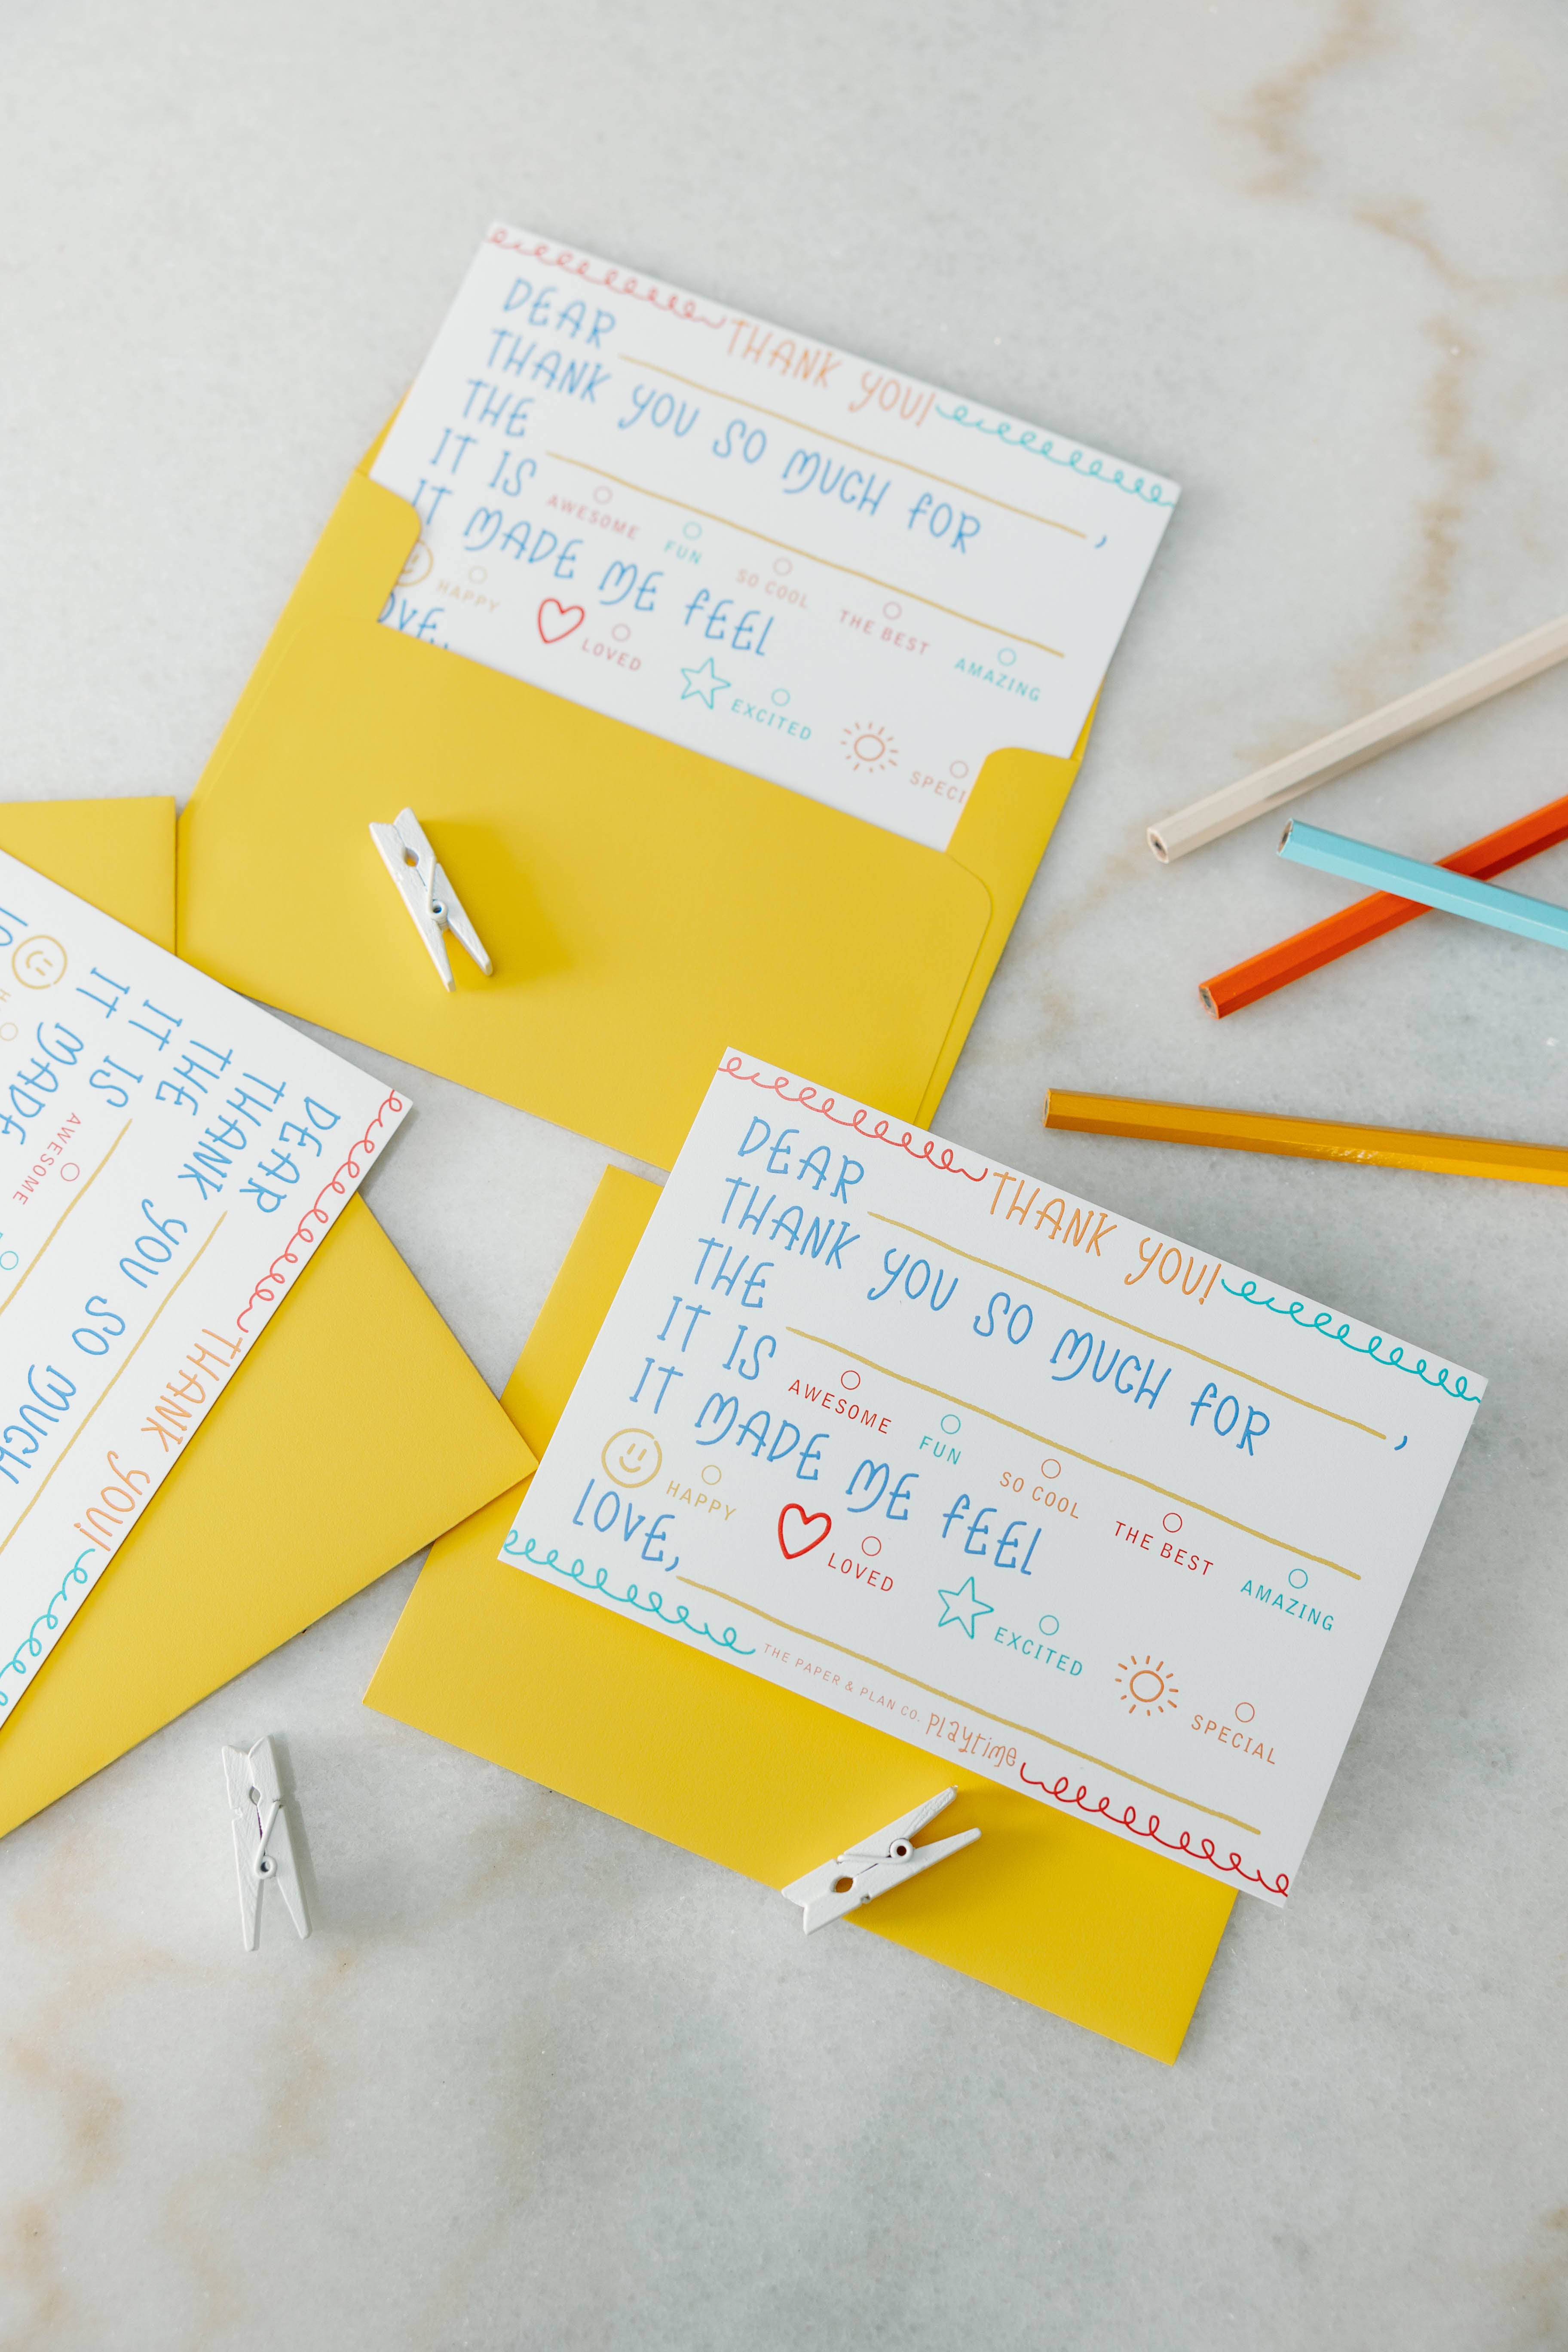 THANK YOU!
DEAR ,
THANK YOU SO MUCH FOR
THE
IT IS AWESOME FUN SO COOL THE BEST AMAZING
IT MADE ME FEEL
HAPPY LOVED EXCITED SPECI
OVE,
THANK YOU!
DEAR
THANK YOU SO MUCH
THE
IT IS AWESOME
IT MADE
THANK YOU!
DEAR ,
THANK YOU SO MUCH FOR
THE
IT IS AWESOME FUN SO COOL THE BEST AMAZING
IT MADE ME FEEL
HAPPY LOVED EXCITED SPECIAL
LOVE,
THE PAPER & PLAN CO. playtime